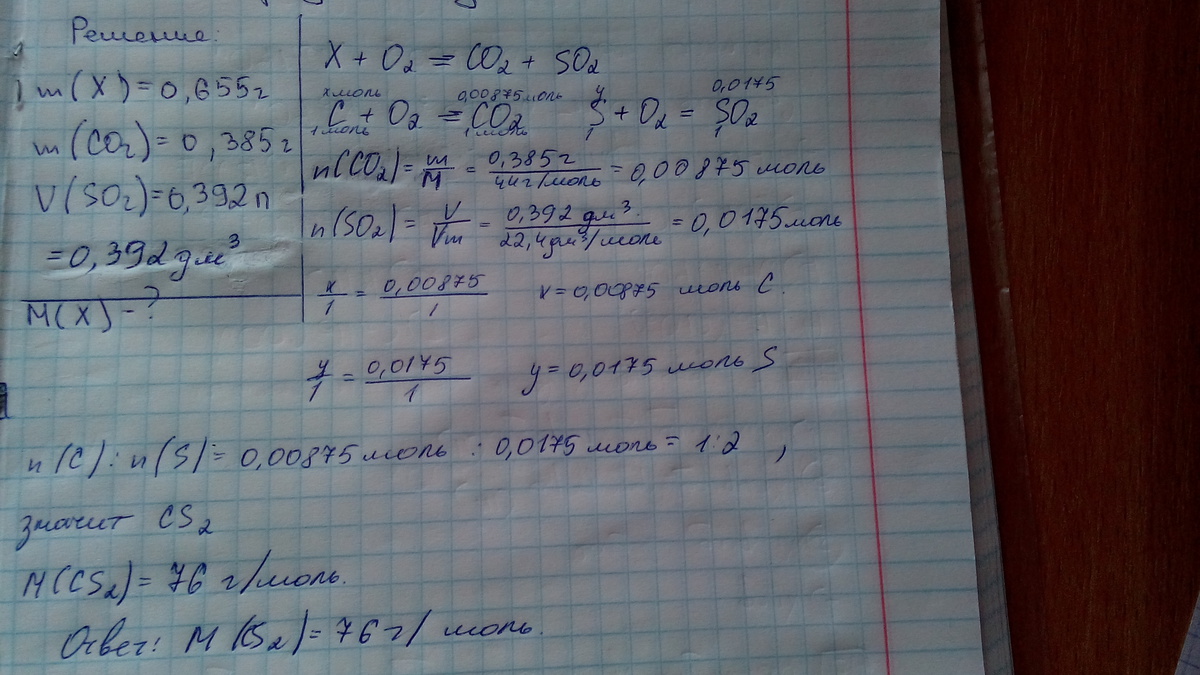 Решение:
m(X)=0,655г
m(CO₂)=0,385г
V(SO₂)=0,392л
=0,392дм³
M(X)-?
X + O₂ = CO₂ + SO₂
x моль 0,00875моль y 0,0175
C + O₂ = CO₂ S + O₂ = SO₂
1моль 1моль 1 1
n(CO₂)= m/M = 0,385г/44г/моль = 0,00875 моль
n(SO₂)= V/Vm = 0,392 дм³/22,4дм³/моль = 0,0175моль
x/1 = 0,00875/1 x=0,00875 моль C.
y/1 = 0,0175/1 y=0,0175 моль S
n(C):n(S)= 0,00875 моль : 0,0175 моль = 1:2 ,
значит CS₂
M(CS₂)= 76 г/моль.
Ответ: M(CS₂)=76г/ моль.